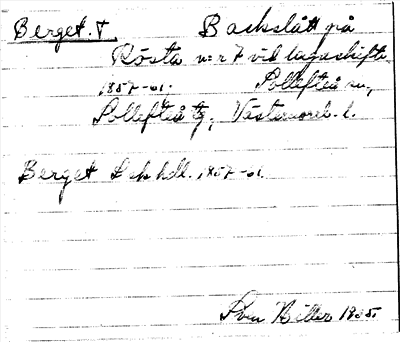 Berget. † Backslått på
Rösta n:r 7 vid lagaskifte
1857-61. Sollefteå sn,
Sollefteå tg, Västernorrl. l.
Berget Lsk hdl. 1857-61.
Sven 1935.